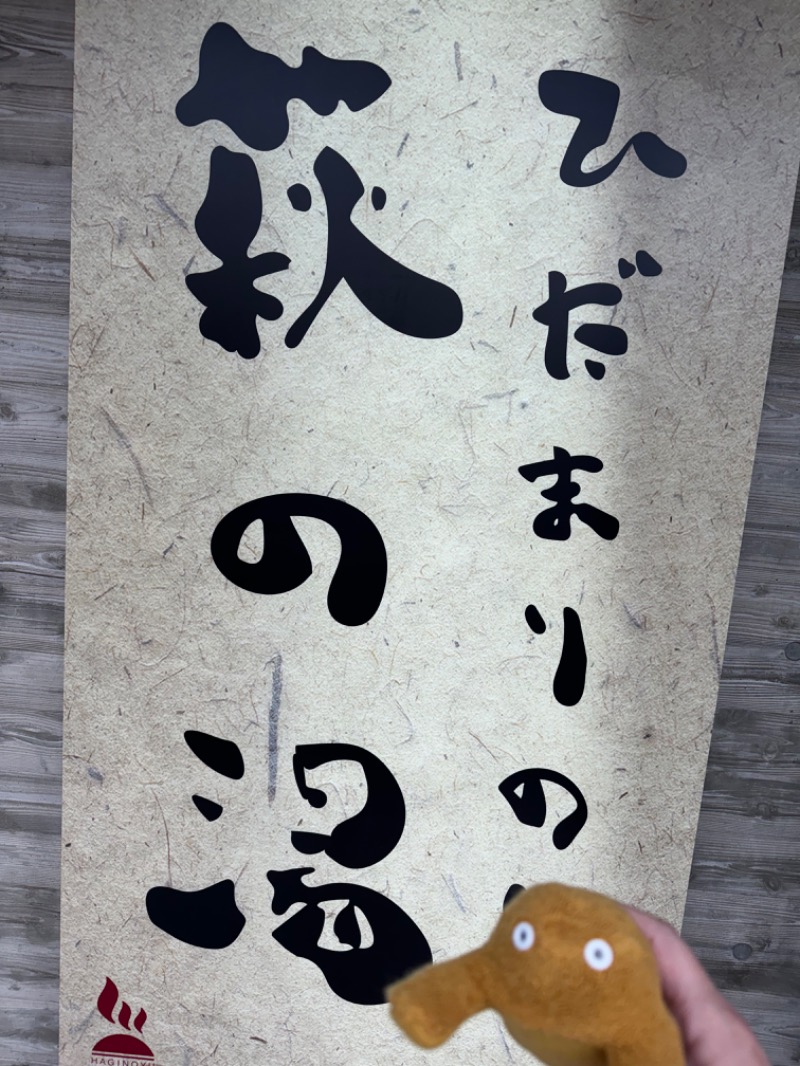 ひだまりの
萩の湯